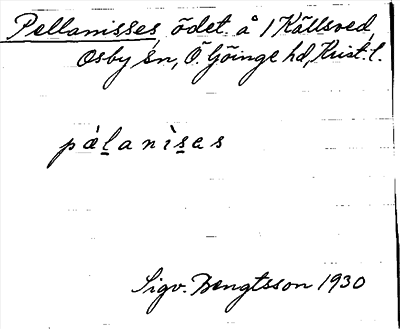 Pellanisses, ödet. å 1 Källsved,
Osby sn, Ö. Göinge hd, Krist. l.
pæ̀l̲anìs̲as
Sigv. Bengtsson 1930